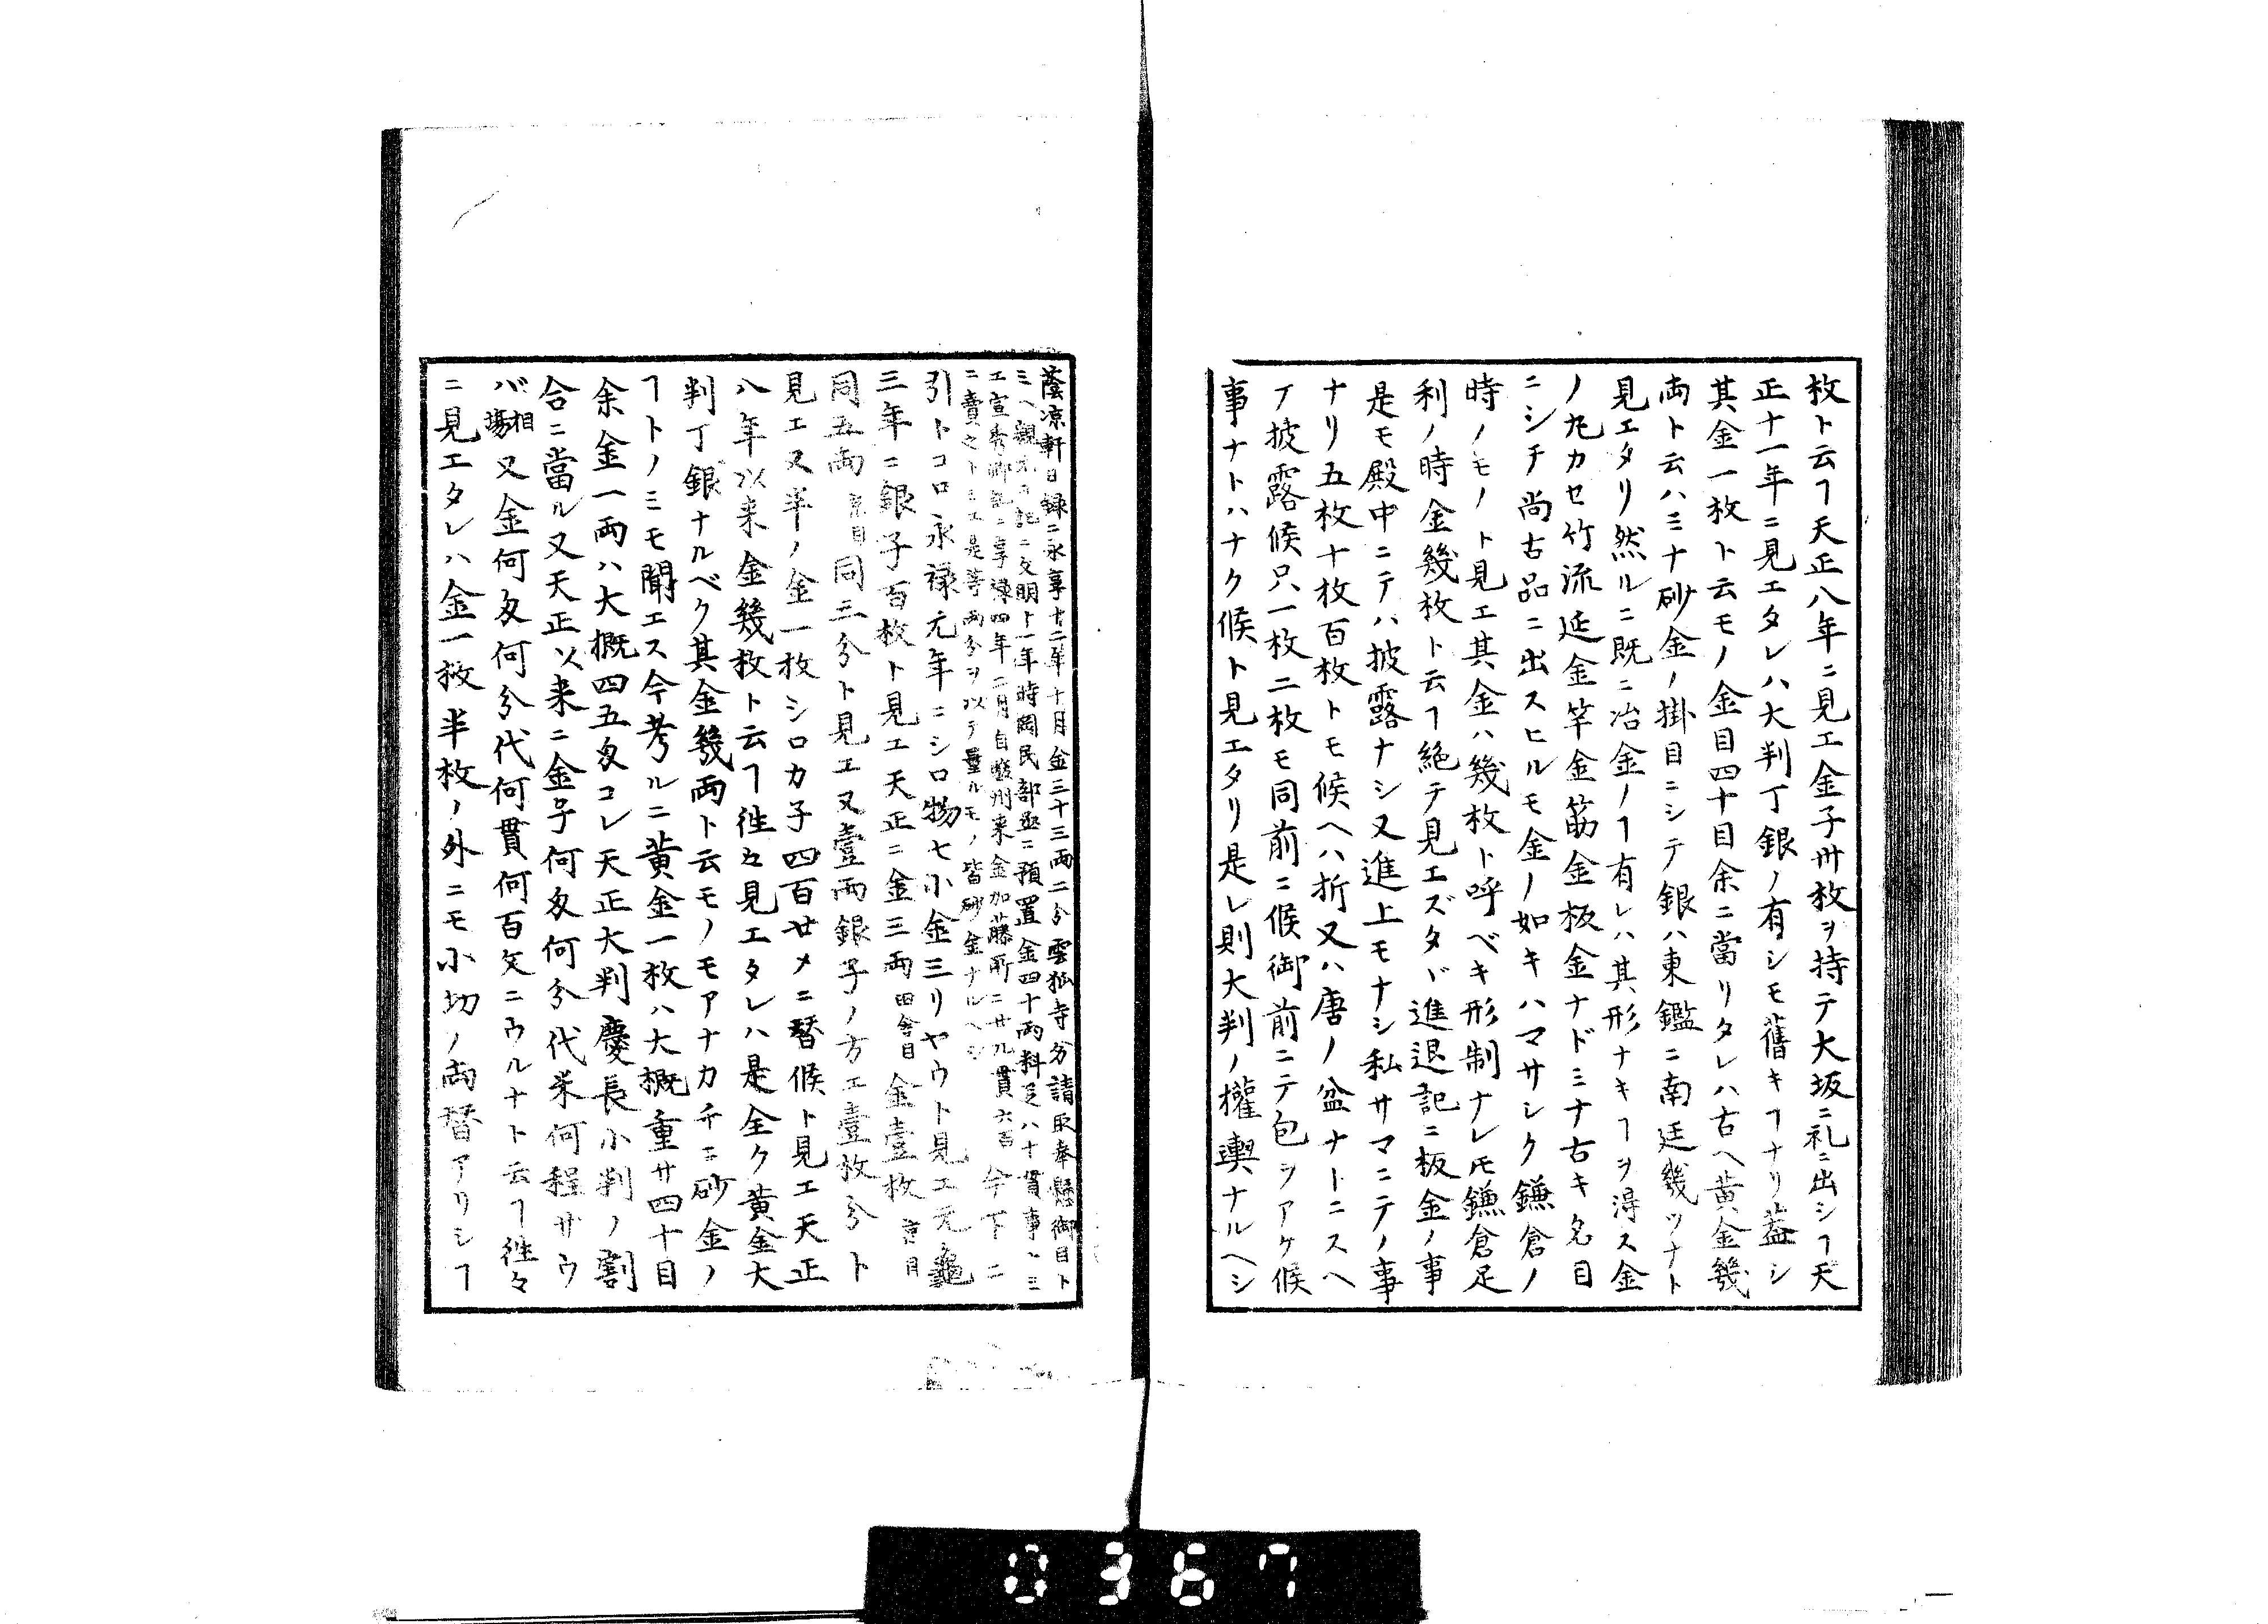 枚ト云ヿ天正八年ニ見エ金子卅枚ヲ持テ大坂ニ礼ニ出シヿ天
正十一年ニ見エタレハ大判丁銀ノ有シモ舊キヿナリ蓋シ
其金一枚ト云モノ金目四十目余ニ當リタレハ古ヘ黄金幾
両ト云ハミナ砂金ノ掛目ニシテ銀ハ東鑑ニ南廷幾ツナト
見エタリ然ルニ既ニ冶金ノヿ有レハ其形ナキヿヲ得ス金
ノ丸カセ竹流延金竿金筋金板金ナドミナ古キ名目
ニシチ尚古品ニ出スヒルモ金ノ如キハマサシク鎌倉ノ
時ノモノト見エ其金ハ幾枚ト呼ベキ形制ナレ𪜈鎌倉足
利ノ時金幾枚ト云ヿ絶テ見エズタヾ進退記ニ板金ノ事
是モ殿中ニテハ披露ナシ又進上モナシ私サマニテノ事
ナリ五枚十枚百枚トモ候ヘハ折又ハ唐ノ盆ナトニスヘ
テ披露候只一枚二枚モ同前ニ候御前ニテ包ヲアケ候
事ナトハナク候ト見エタリ是レ則大判ノ權輿ナルヘシ
蔭凉軒日録ニ永享十二年十月金三十三両二分雲松寺分請取奉懸御目ト
ミヘ親元日記ニ文明十一年時岡民部丞ニ預置金四十両料足八十貫事ト三
エ宣秀卿記ニ享禄四年二月自駿州来金加藤所ニ廿九貫六百
ニ賣之トミエ是等両分ヲ以テ量ルモノ皆砂金ナルヘシ
今下ニ
引トコロ永禄元年ニシロ物七小金三リヤウト見エ元龜
三年ニ銀子百枚ト見エ天正ニ金三両田舎目金壹枚京目
同五両京目同三分ト見エ又壹両銀子ノ方エ壹枚分ト
見エ又半ノ金一枚シロカ子四百廿〆ニ替候ト見エ天正
八年以来金幾枚ト云ヿ徃々見エタレハ是全ク黄金大
判丁銀ナルベク其金幾両ト云モノモアナカチニ砂金ノ
ヿトノミモ聞エス今考ルニ黄金一枚ハ大概重サ四十目
余金一両ハ大概四五匁コレ天正大判慶長小判ノ割
合ニ當ル又天正以来ニ金子何匁何分代米何程サウ
バ相場又金何匁何分代何貫何百文ニウルナト云ヿ徃々
ニ見エタレハ金一枚半枚ノ外ニモ小切ノ両替アリシヿ
0367